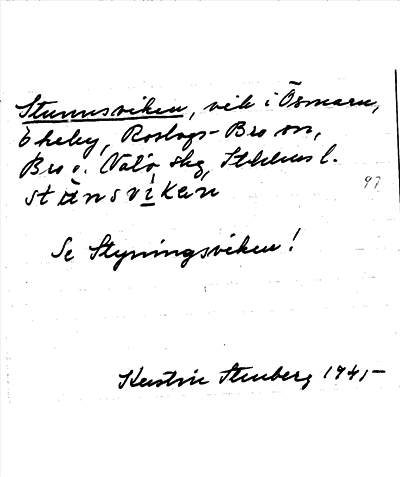 Stunnsviken, vik i Ösmaren,
Ekeby, Roslags-Bro sn,
Bro o. Vätö skg, Sthlms l.
stunsviken
97
Se Styningsviken!
Kerstin Stenberg 1941,-